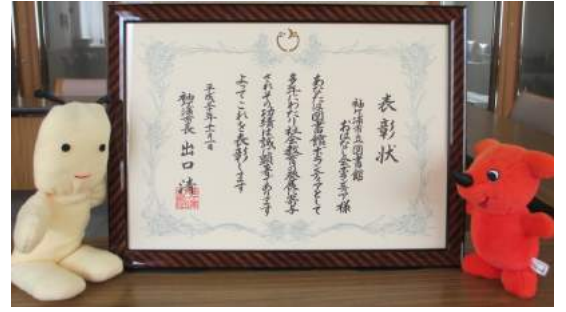 表彰状
袖ケ浦市立図書館
おはなし会ボランティア様
あなたは図書館ボランティアとして
多年にわたり社会教育の発展に寄与
されその功績は誠に顕著であります
よってこれを表彰します
平成
袖ケ浦市長 出口 清